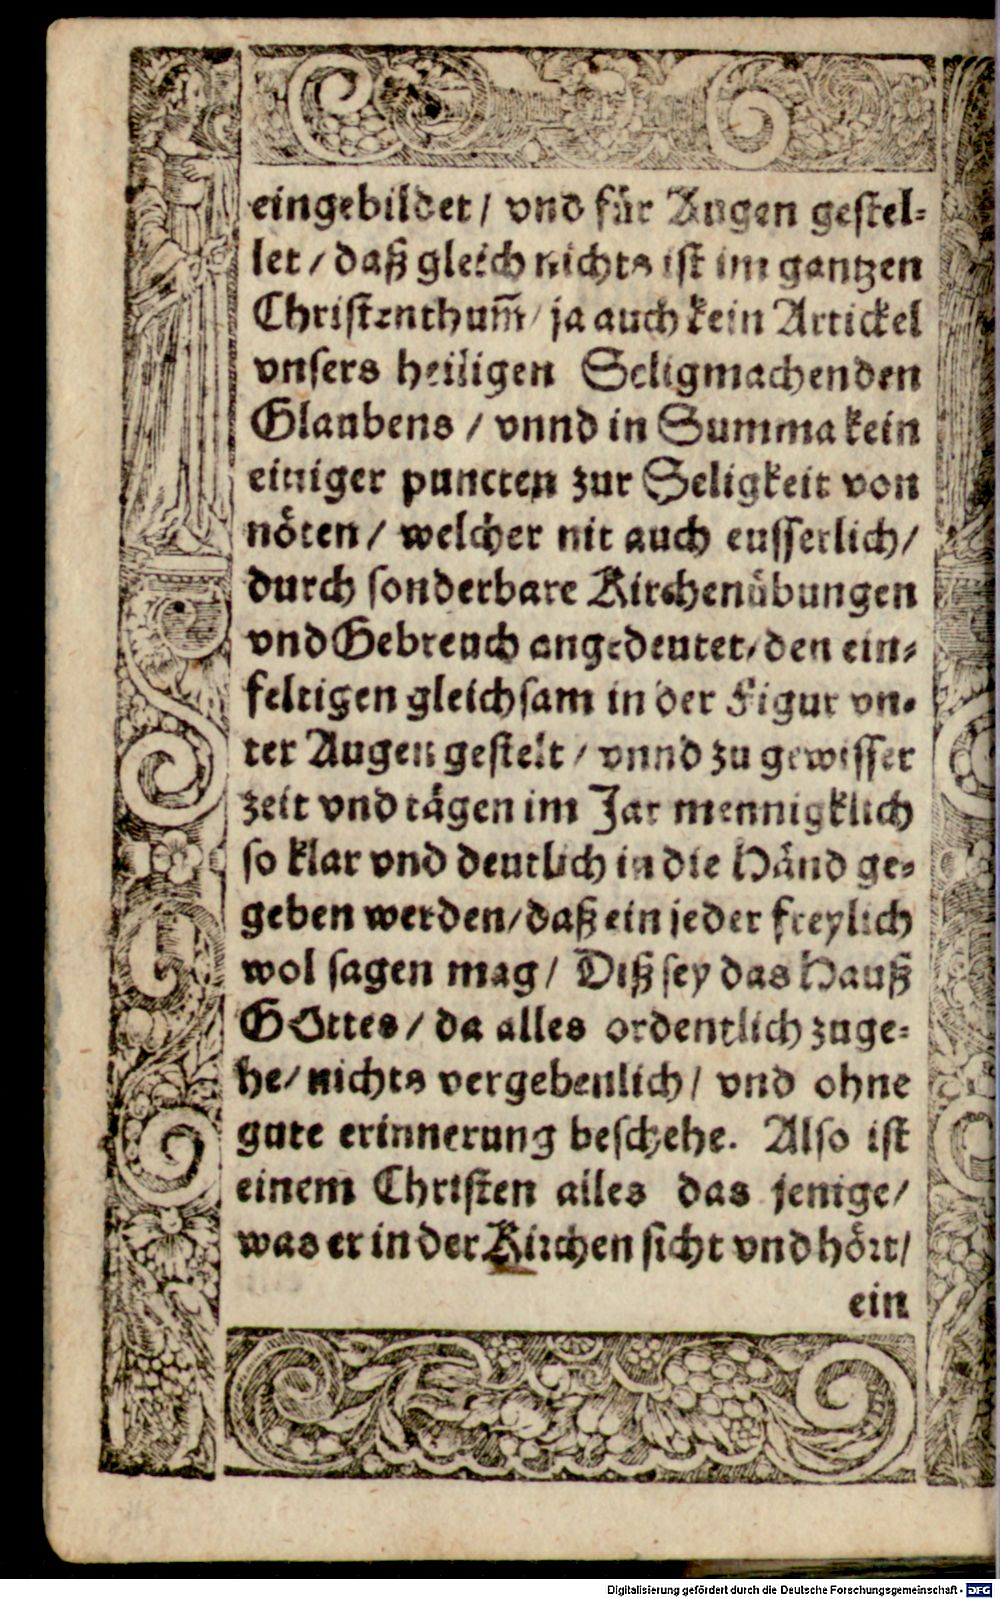 eingebildet / vnd für Augen gestel⸗
let / daß gleich nichts ist im gantzen
Christenthum̅ / ja auch kein Artickel
vnsers heiligen Seligmachenden
Glaubens / vnnd in Summa kein
einiger puncten zur Seligkeit von
nöten / welcher nit auch eusserlich /
durch sonderbare Kirchenübungen
vnd Gebreuch angedeutet / den ein⸗
feltigen gleichsam in der Figur vn⸗
ter Augen gestelt / vnnd zu gewisser
zeit vnd tägen im Jar mennigklich
so klar vnd deutlich in die Händ ge⸗
geben werden / daß ein jeder freylich
wol sagen mag / Diß sey das Hauß
GOttes / da alles ordentlich zuge⸗
he / nichts vergebenlich / vnd ohne
gute erinnerung beschehe. Also ist
einem Christen alles das jenige /
was er in der Kirchen sicht vnd hört /
ein
Digitalisierung gefördert durch die Deutsche Forschungsgemeinschaft - DFG